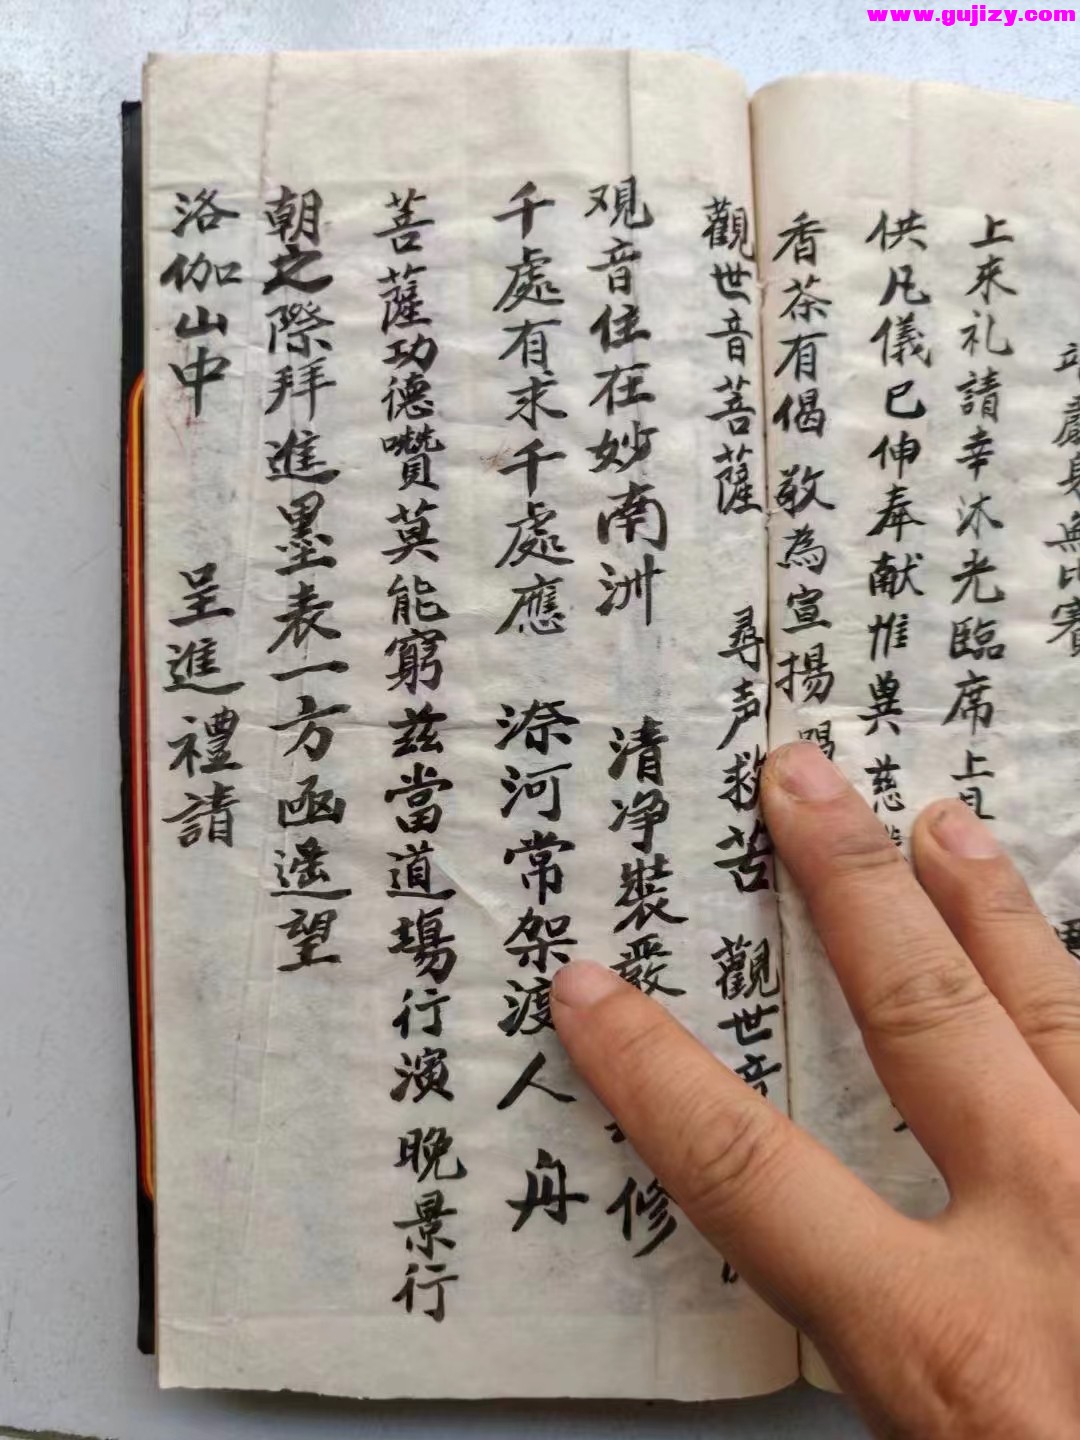 www.gujizy.com
處身無比賽
上來礼請幸沐光臨席上
供凡儀已伸奉献惟兾慈
香茶有偈 敬為宣揚
觀世音菩薩 尋声救苦 觀世音
观音住在妙南洲 清净裝嚴 修
千處有求千處應 深河常架渡人舟
菩薩功德讚莫能窮兹當道場行演晚景行
朝之際拜進墨表一方函遥望
洛伽山中 呈進禮請